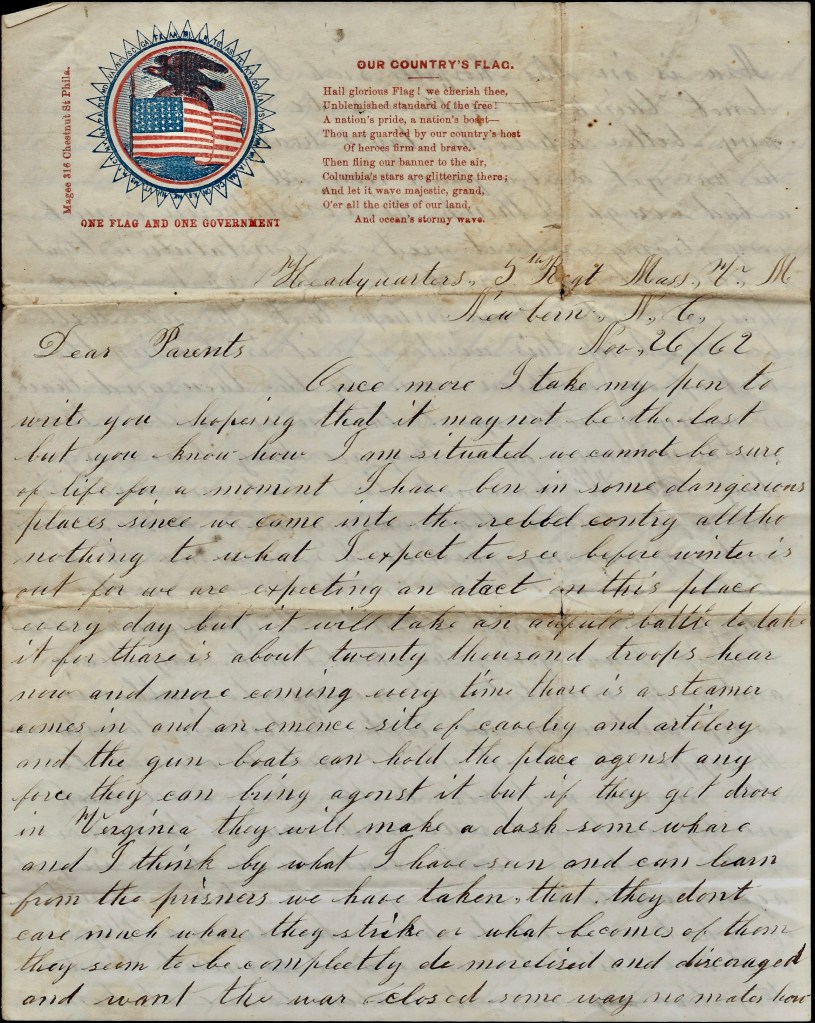 Magee 316 Chestnut St Phila.
ONE FLAG AND ONE GOVERNMENT
OUR COUNTRY'S FLAG.
Hail glorious Flag! we cherish thee,
Unblemished standard of the free!
A nation's pride, a nation's boast—
Thou art guarded by our country's host
Of heroes firm and brave.
Then fling our banner to the air,
Columbia's stars are glittering there;
And let it wave majestic, grand,
O'er all the cities of our land,
And ocean's stormy wave.
Headquarters, 5th Regt Mass, V, M
Newbern, N, C,
Nov, 26/62
Dear Parents
Once more I take my pen to
write you hopeing that it may not be the last
but you know how I am situated we cannot be sure
of life for a moment I have ben in some dangerious
places since we came into the rebbel contry all tho
nothing to what I expect to see before winter is
out for we are expecting an atact on this place
every day but it will take an battle to take
it for thare is about twenty thousand troops hear
now and more coming every time thare is a steamer
comes in and an emence site of cavelry and artilery
and the gun boats can hold the place agenst any
force they can bring agonst it but if they get drove
in Verginia they will make a dash some whare
and I think by what I have sun and can learn
from the prisners we have taken, that, they dont
care much whare they strike or what becomes of them
they seem to be compleetly de morelised and discoraged
and want the war closed some way no mater how